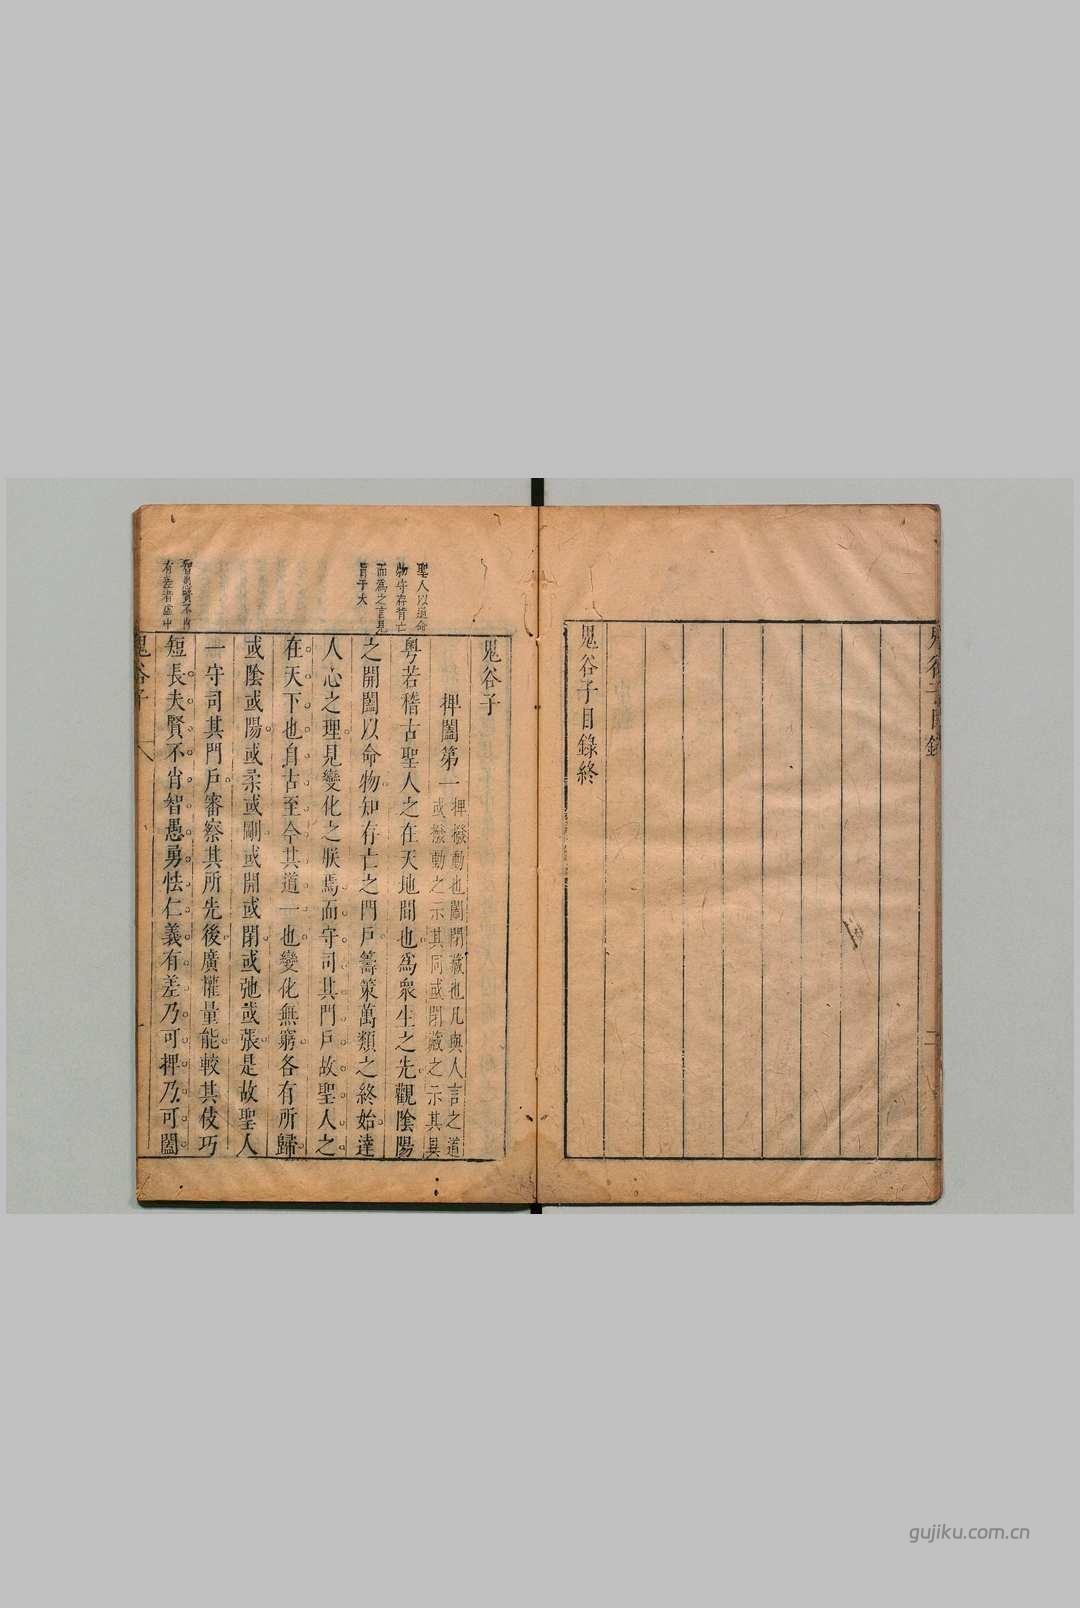 鬼谷子目錄
二
鬼谷子目錄終
聖人以道命
物守存背亡
而爲之言見
旨于大
鬼谷子
捭闔第一
捭撥動也闔閉藏也凡與人言之道
或撥動之示其同或閉藏之示其異
粤若稽古聖人之在天地間也爲衆生之先觀陰陽
之開闔以命物知存亡之門戶籌策萬類之終始達
人心之理見變化之朕焉而守司其門戶故聖人之
在天下也自古至今其道一也變化無窮各有所歸
或陰或陽或柔或剛或開或閉或弛或張是故聖人
一守司其門戶審察其所先後廣權量能較其伎巧
短長夫賢不肖智愚勇怯仁義有差乃可捭乃可闔
智愚賢不肖
有差者虛中
鬼谷子
gujiku.com.cn